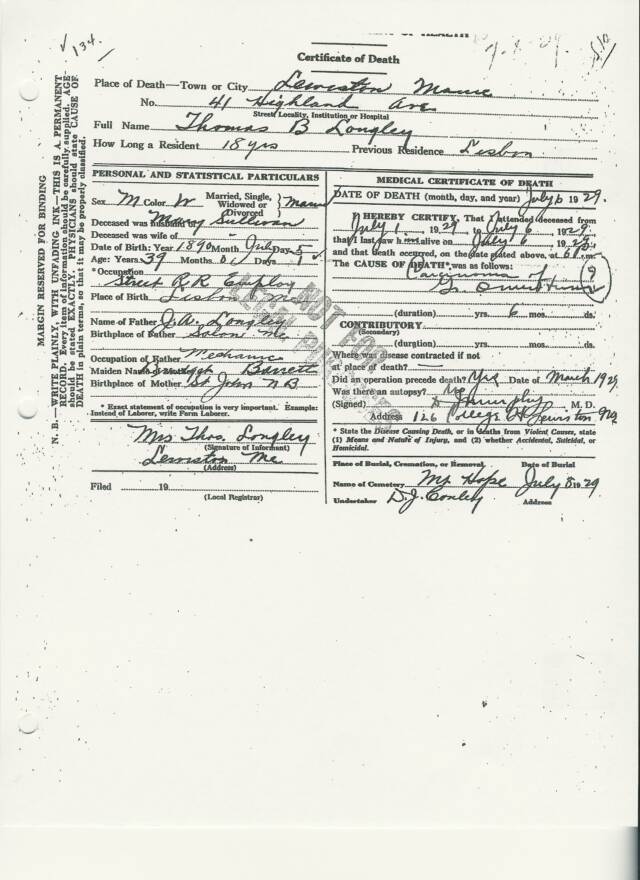 134.
OF HEALTH
Certificate of Death
Place of Death—Town or City Lewiston Maine
No. 41 Highland Ave
Street, Locality, Institution or Hospital
Full Name Thomas B Longley
How Long a Resident 18 yrs Previous Residence Lisbon
MARGIN RESERVED FOR BINDING
N. B.—WRITE PLAINLY, WITH UNFADING INK—THIS IS A PERMANENT
RECORD. Every item of information should be carefully supplied. AGE
should be stated EXACTLY. PHYSICIANS should state CAUSE OF
DEATH in plain terms, so that it may be properly classified.
PERSONAL AND STATISTICAL PARTICULARS
Sex M Color W Married, Single, Widowed or Divorced
Deceased was husband of Mary Sullivan
Deceased was wife of
Date of Birth: Year 1890 Month July Day 5
Age: Years 39 Months 0 Days 1
*Occupation
Street R.R. Employ
Place of Birth Lisbon Me
Name of Father J. A. Longley
Birthplace of Father Solon Me
Occupation of Father Mechanic
Maiden Name of Mother Bridget Barrett
Birthplace of Mother St John N B
* Exact statement of occupation is very important. Example:
Instead of Laborer, write Farm Laborer.
Mrs Thos. Longley
(Signature of Informant)
Lewiston Me
(Address)
Filed 19
(Local Registrar)
MEDICAL CERTIFICATE OF DEATH
DATE OF DEATH (month, day, and year) July 6 1929.
I HEREBY CERTIFY, That I attended deceased from
July 1 1929 to July 6 1929
that I last saw him alive on July 6 1929
and that death occurred, on the date stated above, at m.
The CAUSE OF DEATH* was as follows:
Carcinoma of
(duration) yrs. 6 mos. ds.
CONTRIBUTORY
(Secondary)
(duration) yrs. mos. ds.
Where was disease contracted if not
at place of death?
Did an operation precede death? Yes Date of March 1929
Was there an autopsy? No
(Signed) Murphy M. D.
Address 126 College St Lewiston Me
* State the Disease Causing Death, or in deaths from Violent Causes, state
(1) Means and Nature of Injury, and (2) whether Accidental, Suicidal, or
Homicidal.
Place of Burial, Cremation, or Removal. Date of Burial
Name of Cemetery Mt Hope July 8 1929
Undertaker D. J. Conley Address
NOT FOR